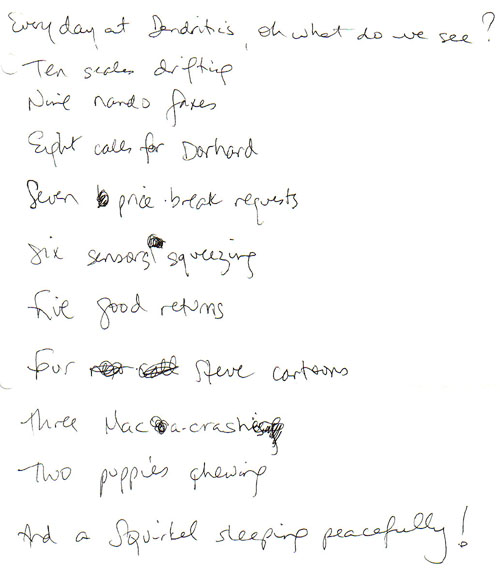 Every day at Dendritics, oh what do we see?
Ten scales drifting
Nine nando faxes
Eight calls for Dorhard
Seven price-break requests
Six sensors squeezing
Five good returns
Four Steve cartoons
Three Mac a-crashing
Two puppies chewing
And a Squirkel sleeping peacefully!